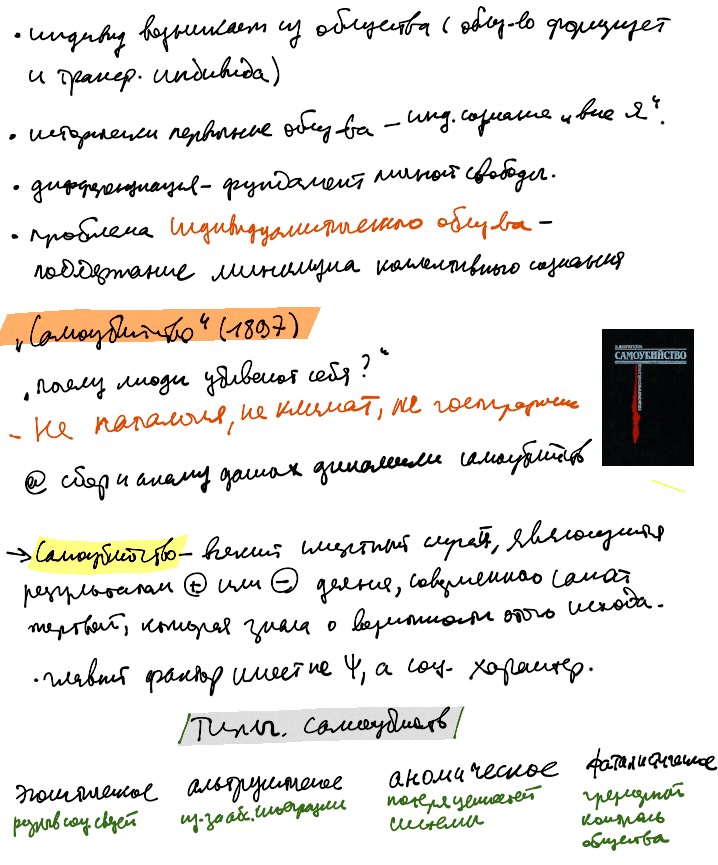 • индивид возникает из общества (общ-во формирует
и трансф. индивида)
• исторически первичные общ-ва – инд. сознание „вне Я“.
• дифференциация – фундамент личной свободы.
• проблема индивидуалистического общ-ва –
поддержание минимума коллективного сознания
„Самоубийство“ (1897)
„почему люди убивают себя?“
– не патология, не климат, не
@ сбор и анализ данных динамики самоубийств
Э. ДЮРКГЕЙМ
САМОУБИЙСТВО
→ Самоубийство – всякий смертный случай, являющийся
результатом ⊕ или ⊖ деяния, совершенного самой
жертвой, которая знала о вероятности этого исхода.
• главный фактор имеет не Ψ, а соц. характер.
Типы самоубийств
эгоистическое альтруистическое аномическое фаталистическое
разрыв соц. связей из-за абс. интеграции потеря ценностей системы чрезмерный контроль общества